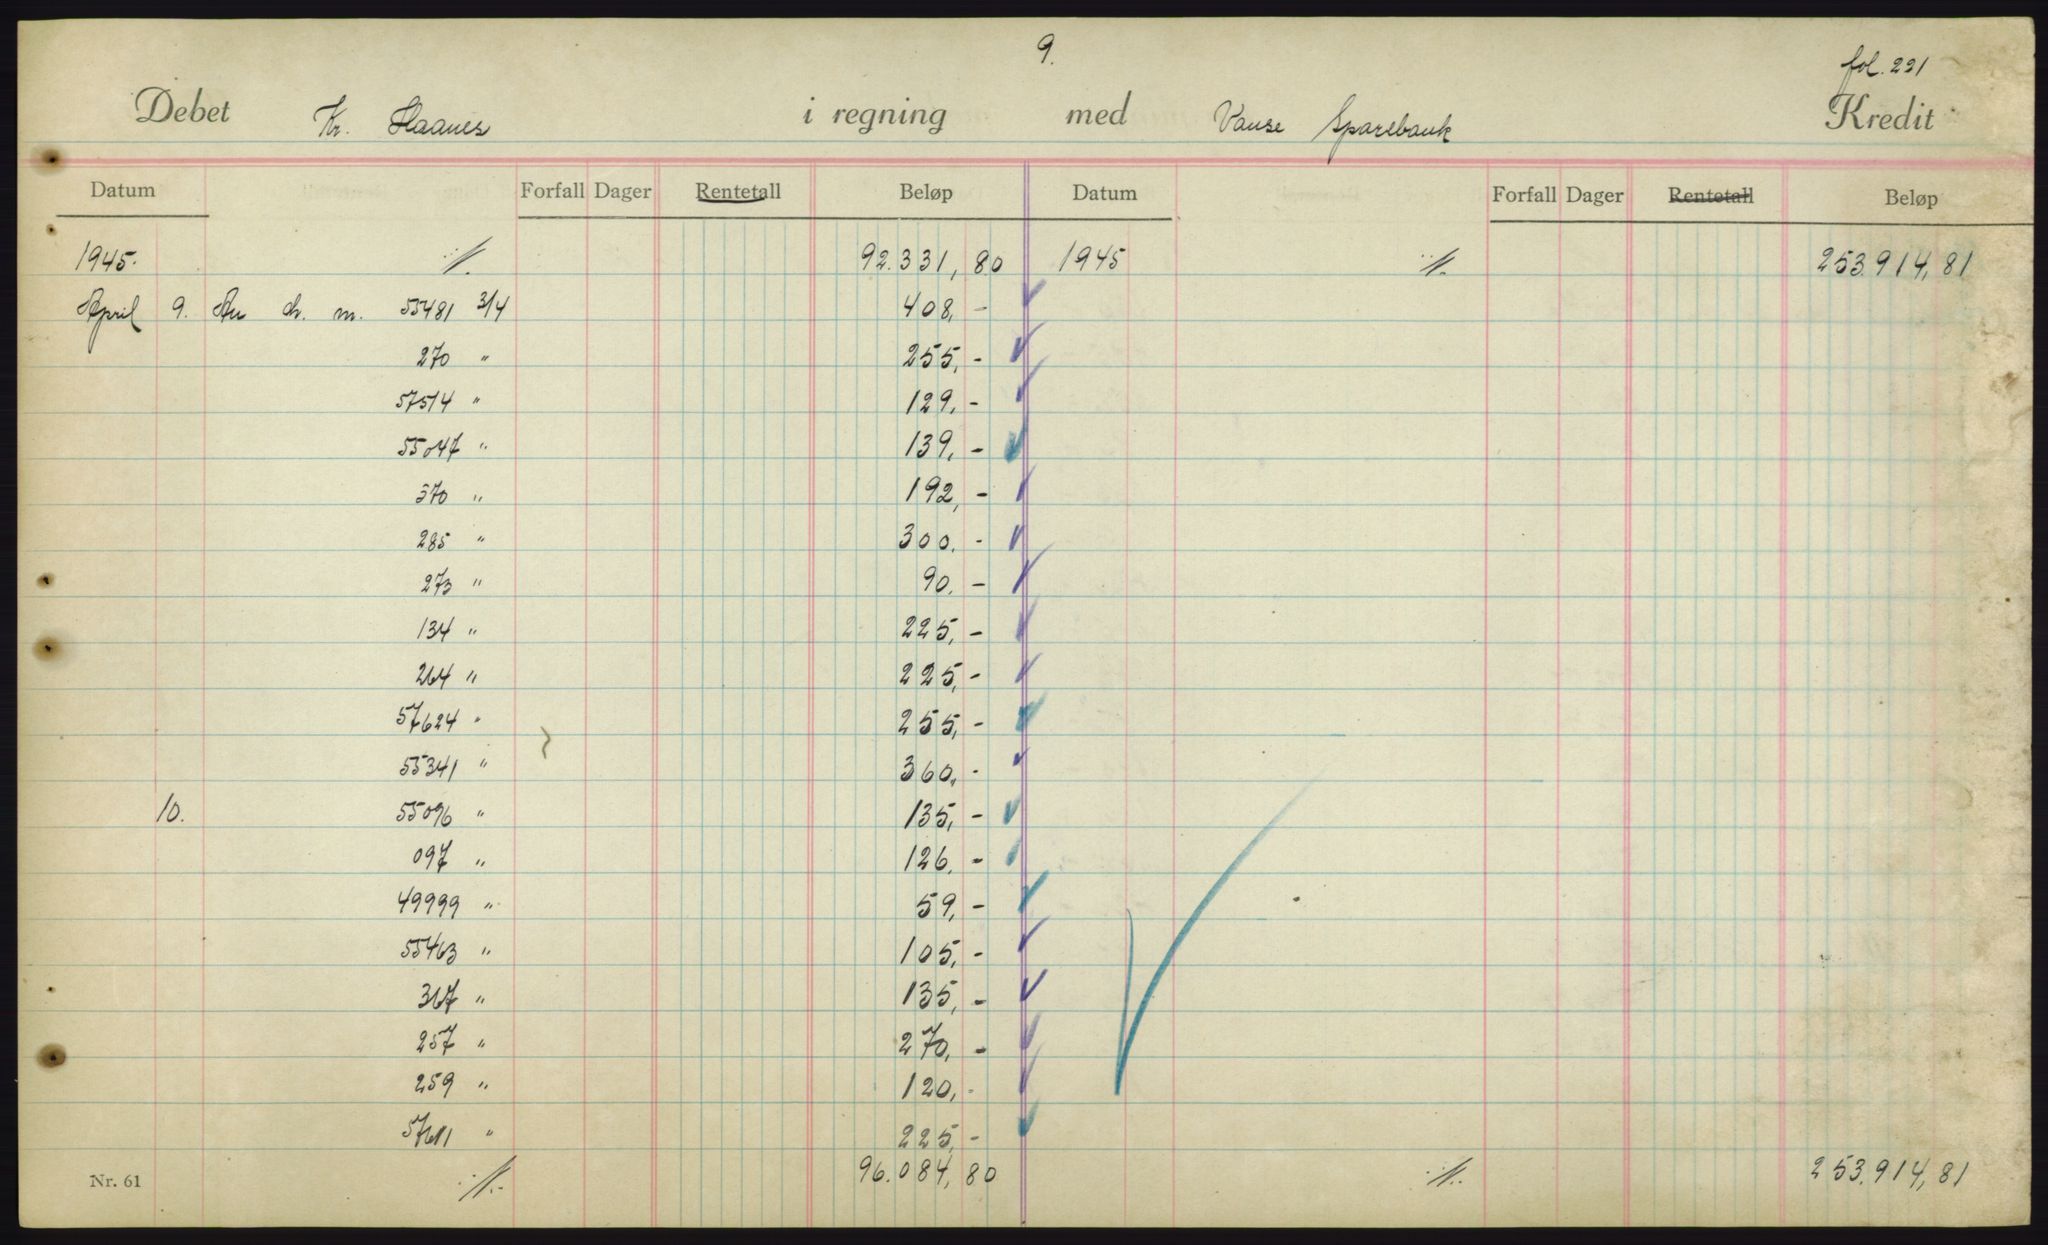 9.
fol. 221
Debet Kr. Haanes i regning med Vanse Sparebank Kredit
Datum Forfall Dager Rentetall Beløp Datum Forfall Dager Rentetall Beløp
1945. 92.331,80 1945 253.914,81
April 9. An ch. m. 55481 3/4 408,-
270 " 255,-
57514 " 129,-
55047 " 139,-
370 " 192,-
285 " 300,-
273 " 90,-
134 " 225,-
264 " 225,-
57624 " 255,-
55341 " 360,-
10. 55096 " 135,-
097 " 126,-
49999 " 59,-
55463 " 105,-
367 " 135,-
257 " 270,-
259 " 120,-
57611 " 225,-
Nr. 61 96.084,80 253.914,81